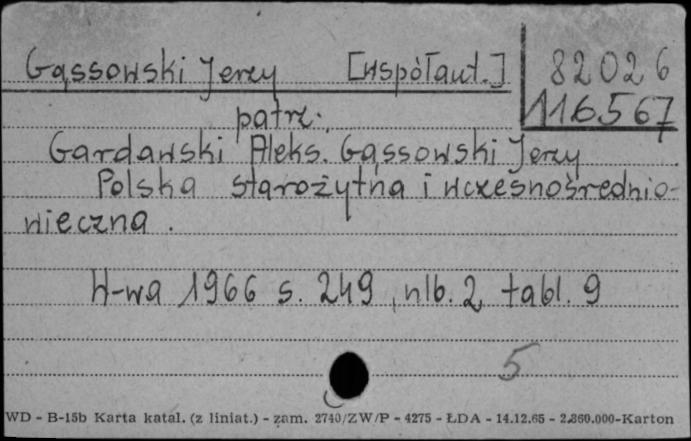 Gąssowski Jerzy [współaut.] 82026
116567
patrz.
Gardawski Aleks. Gąssowski Jerzy
Polska starożytna i wczesnośrednio-
wieczna.
W-wa 1966 s. 249, nlb. 2, tabl. 9
5
WD - B-15b Karta katal. (z liniat.) - zam. 2740/ZW/P - 4275 - ŁDA - 14.12.65 - 2.860.000-Karton